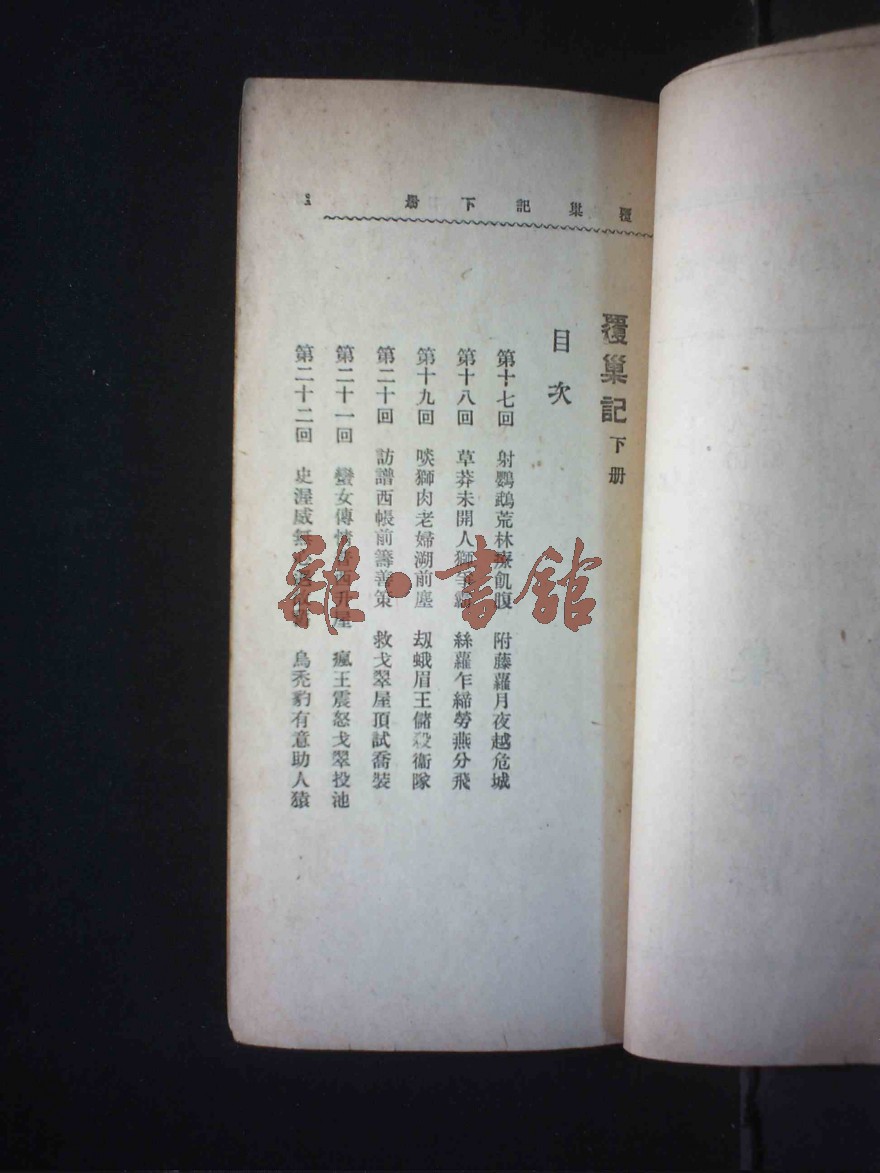 覆巢記下册
覆巢記 下册
目次
第十七回 射鸚鵡荒林療飢腹 附藤蘿月夜越危城
第十八回 草莽未開人獅爭霸 絲蘿乍締勞燕分飛
第十九回 啖獅肉老婦湖前塵 刼蛾眉王儲殺衞隊
第二十回 訪譜西帳前籌善策 救戈翠屋頂試喬裝
第二十一回 蠻女傳情 西升屋 瘋王震怒戈翠投池
第二十二回 史渥威無 烏禿豹有意助人猿
雜·書館